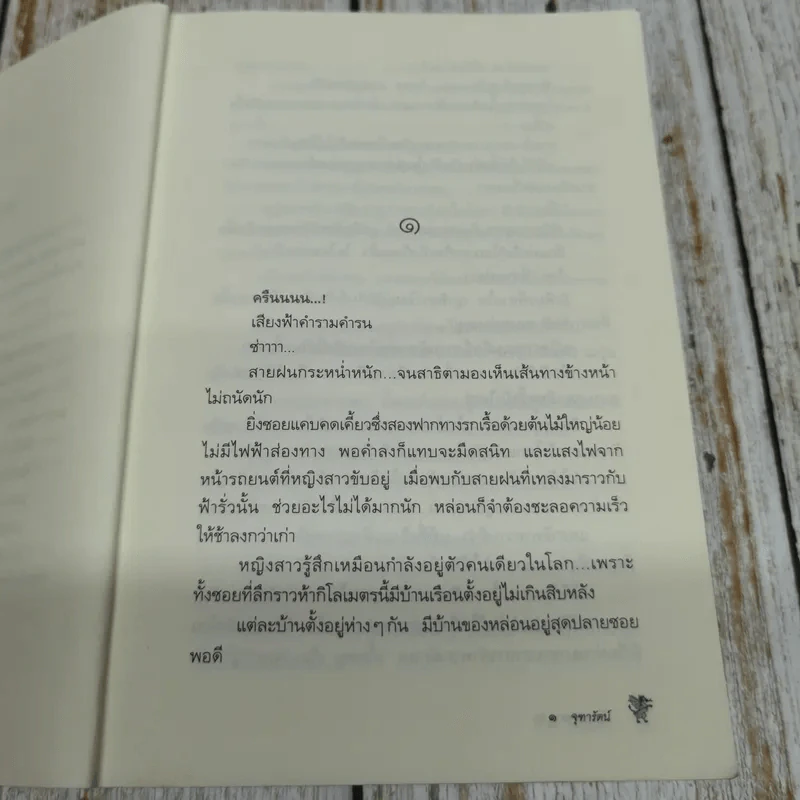 ๑
ครืนนนน...!
เสียงฟ้าคำรามคำรน
ซ่าาาา...
สายฝนกระหน่ำหนัก...จนสาธิตามองเห็นเส้นทางข้างหน้า
ไม่ถนัดนัก
ยิ่งซอยแคบคดเคี้ยวซึ่งสองฟากทางรกเรื้อด้วยต้นไม้ใหญ่น้อย
ไม่มีไฟฟ้าส่องทาง พอค่ำลงก็แทบจะมืดสนิท และแสงไฟจาก
หน้ารถยนต์ที่หญิงสาวขับอยู่ เมื่อพบกับสายฝนที่เทลงมาราวกับ
ฟ้ารั่วนั้น ช่วยอะไรไม่ได้มากนัก หล่อนก็จำต้องชะลอความเร็ว
ให้ช้าลงกว่าเก่า
หญิงสาวรู้สึกเหมือนกำลังอยู่ตัวคนเดียวในโลก...เพราะ
ทั้งซอยที่ลึกราวห้ากิโลเมตรนี้มีบ้านเรือนตั้งอยู่ไม่เกินสิบหลัง
แต่ละบ้านตั้งอยู่ห่างๆ กัน มีบ้านของหล่อนอยู่สุดปลายซอย
พอดี
๑ จุฑารัตน์